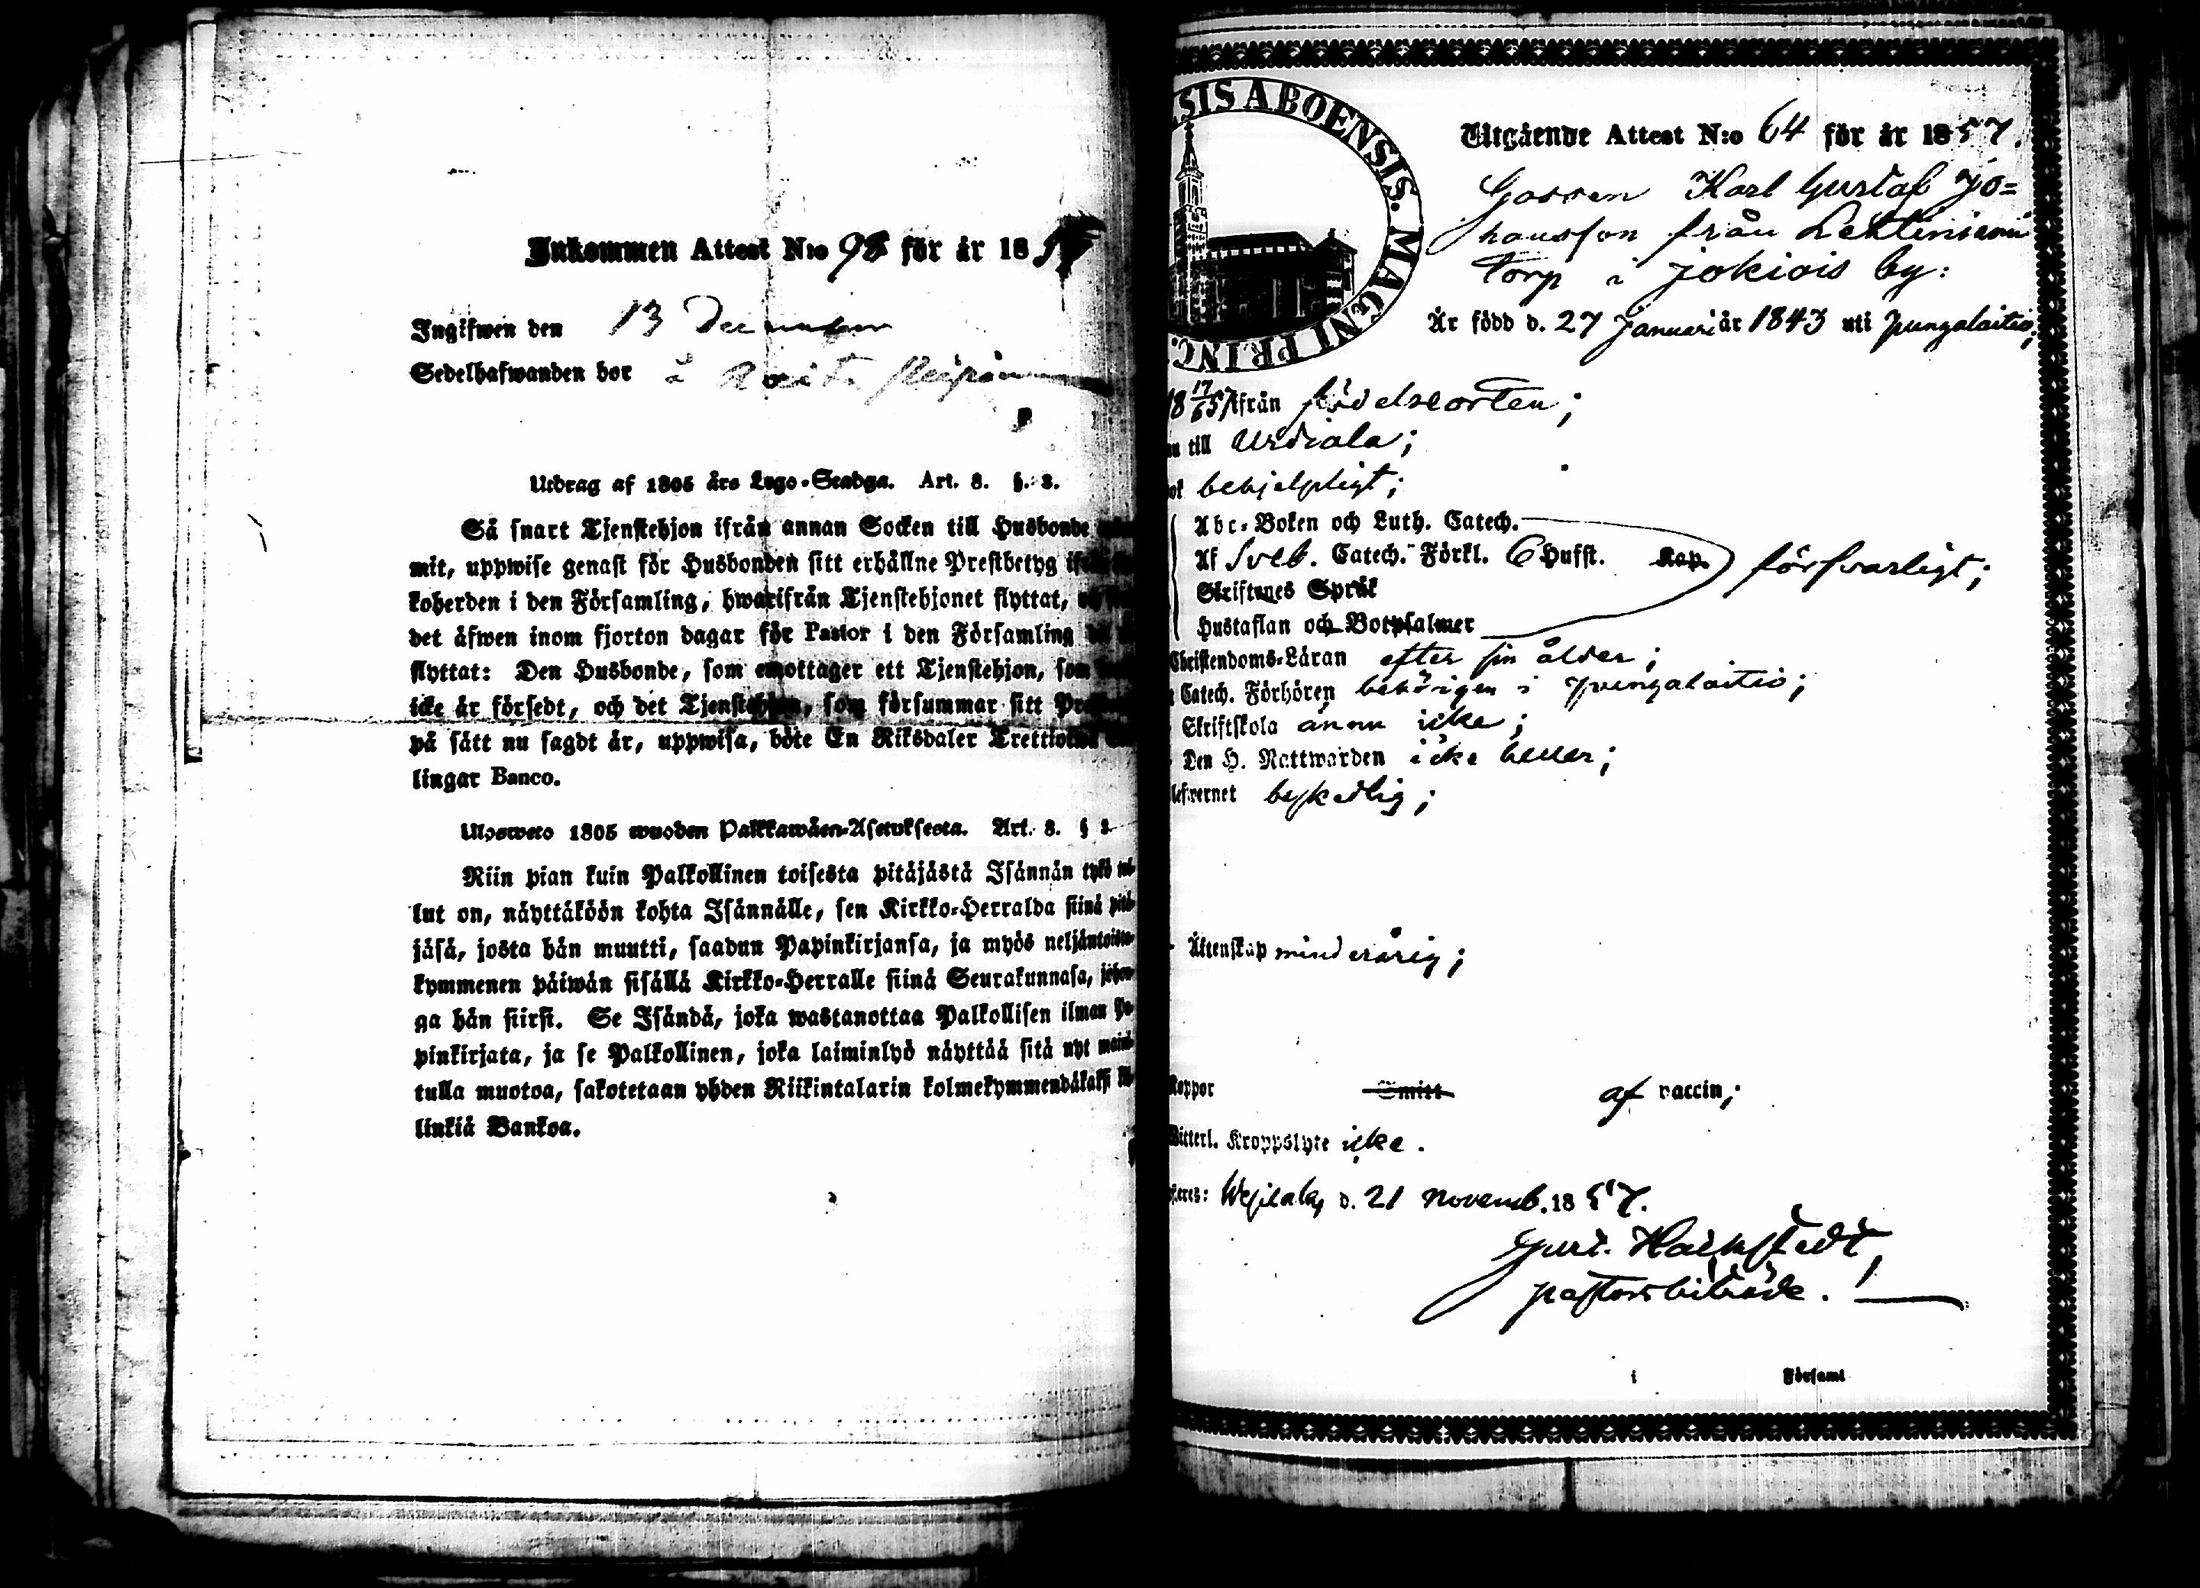 Inkommen Attest N:o 98 för år 18
Ingifwen den 13 December
Sedelhafwanden bor å
Utdrag af 1805 års Lego-Stadga. Art. 8. §. 2.
Så snart Tjenstehjon ifrån annan Socken till Husbonde
mit, uppwise genast för Husbonden sitt erhållne Prestbetyg
koherden i den Församling, hwarifrån Tjenstehjonet flyttat,
det äfwen inom fjorton dagar för Pastor i den Församling
flyttat: Den Husbonde, som emottager ett Tjenstehjon, som
icke är försedt, och det Tjenstehjon, som försummar sitt
på sätt nu sagdt är, uppwisa, böte En Riksdaler
lingar Banco.
Ulosweto 1805 wuoden Palkkawäen-Asetuksesta. Art. 8. §
Niin pian kuin Palkollinen toisesta pitäjästä Isännän tykö tul-
lut on, näyttäköön kohta Isännälle, sen Kirkko-Herralda siinä pitä-
jäsä, josta hän muutti, saadun Papinkirjansa, ja myös neljäntoista-
kymmenen päiwän sisällä Kirkko-Herralle siinä Seurakunnasa, johon-
ga hän siirsi. Se Isändä, joka wastanottaa Palkollisen ilman Pa-
pinkirjata, ja se Palkollinen, joka laiminlyö näyttää sitä nyt maini-
tulla muotoa, sakotetaan yhden Riikintalarin kolmekymmendäkaksi kil-
linkiä Bankoa.
SIS ABOENSIS. MAGNI PRINC.
Utgående Attest N:o 64 för år 1857.
Gossen Karl Gustaf Jo=
hansson från
Torp i Jokiois by:
Är född d. 27 Januari år 1843 uti Pungalaitio;
18 17/6 57 ifrån födelseorten;
till Urdiala;
behjelpligt;
Abc-Boken och Luth. Catech.
Af Sveb. Catech. Förkl. 6 Hufst. Kap. försvarligt;
Skriftenes Språk
Hustaflan och Botpsalmer
Christendoms-Läran efter sin ålder;
Catech. Förhören behörigen i Pungalaitio;
Skriftskola ännu icke;
Den H. Nattwarden icke heller;
lefwernet beskedlig;
Äktenskap minderårig;
Koppor Smitt af vaccin;
Witterl. Kroppslyte icke.
d. 21 Novemb. 1857.
Gust. Hallstedt,
pastorsbiträde.
i Församl